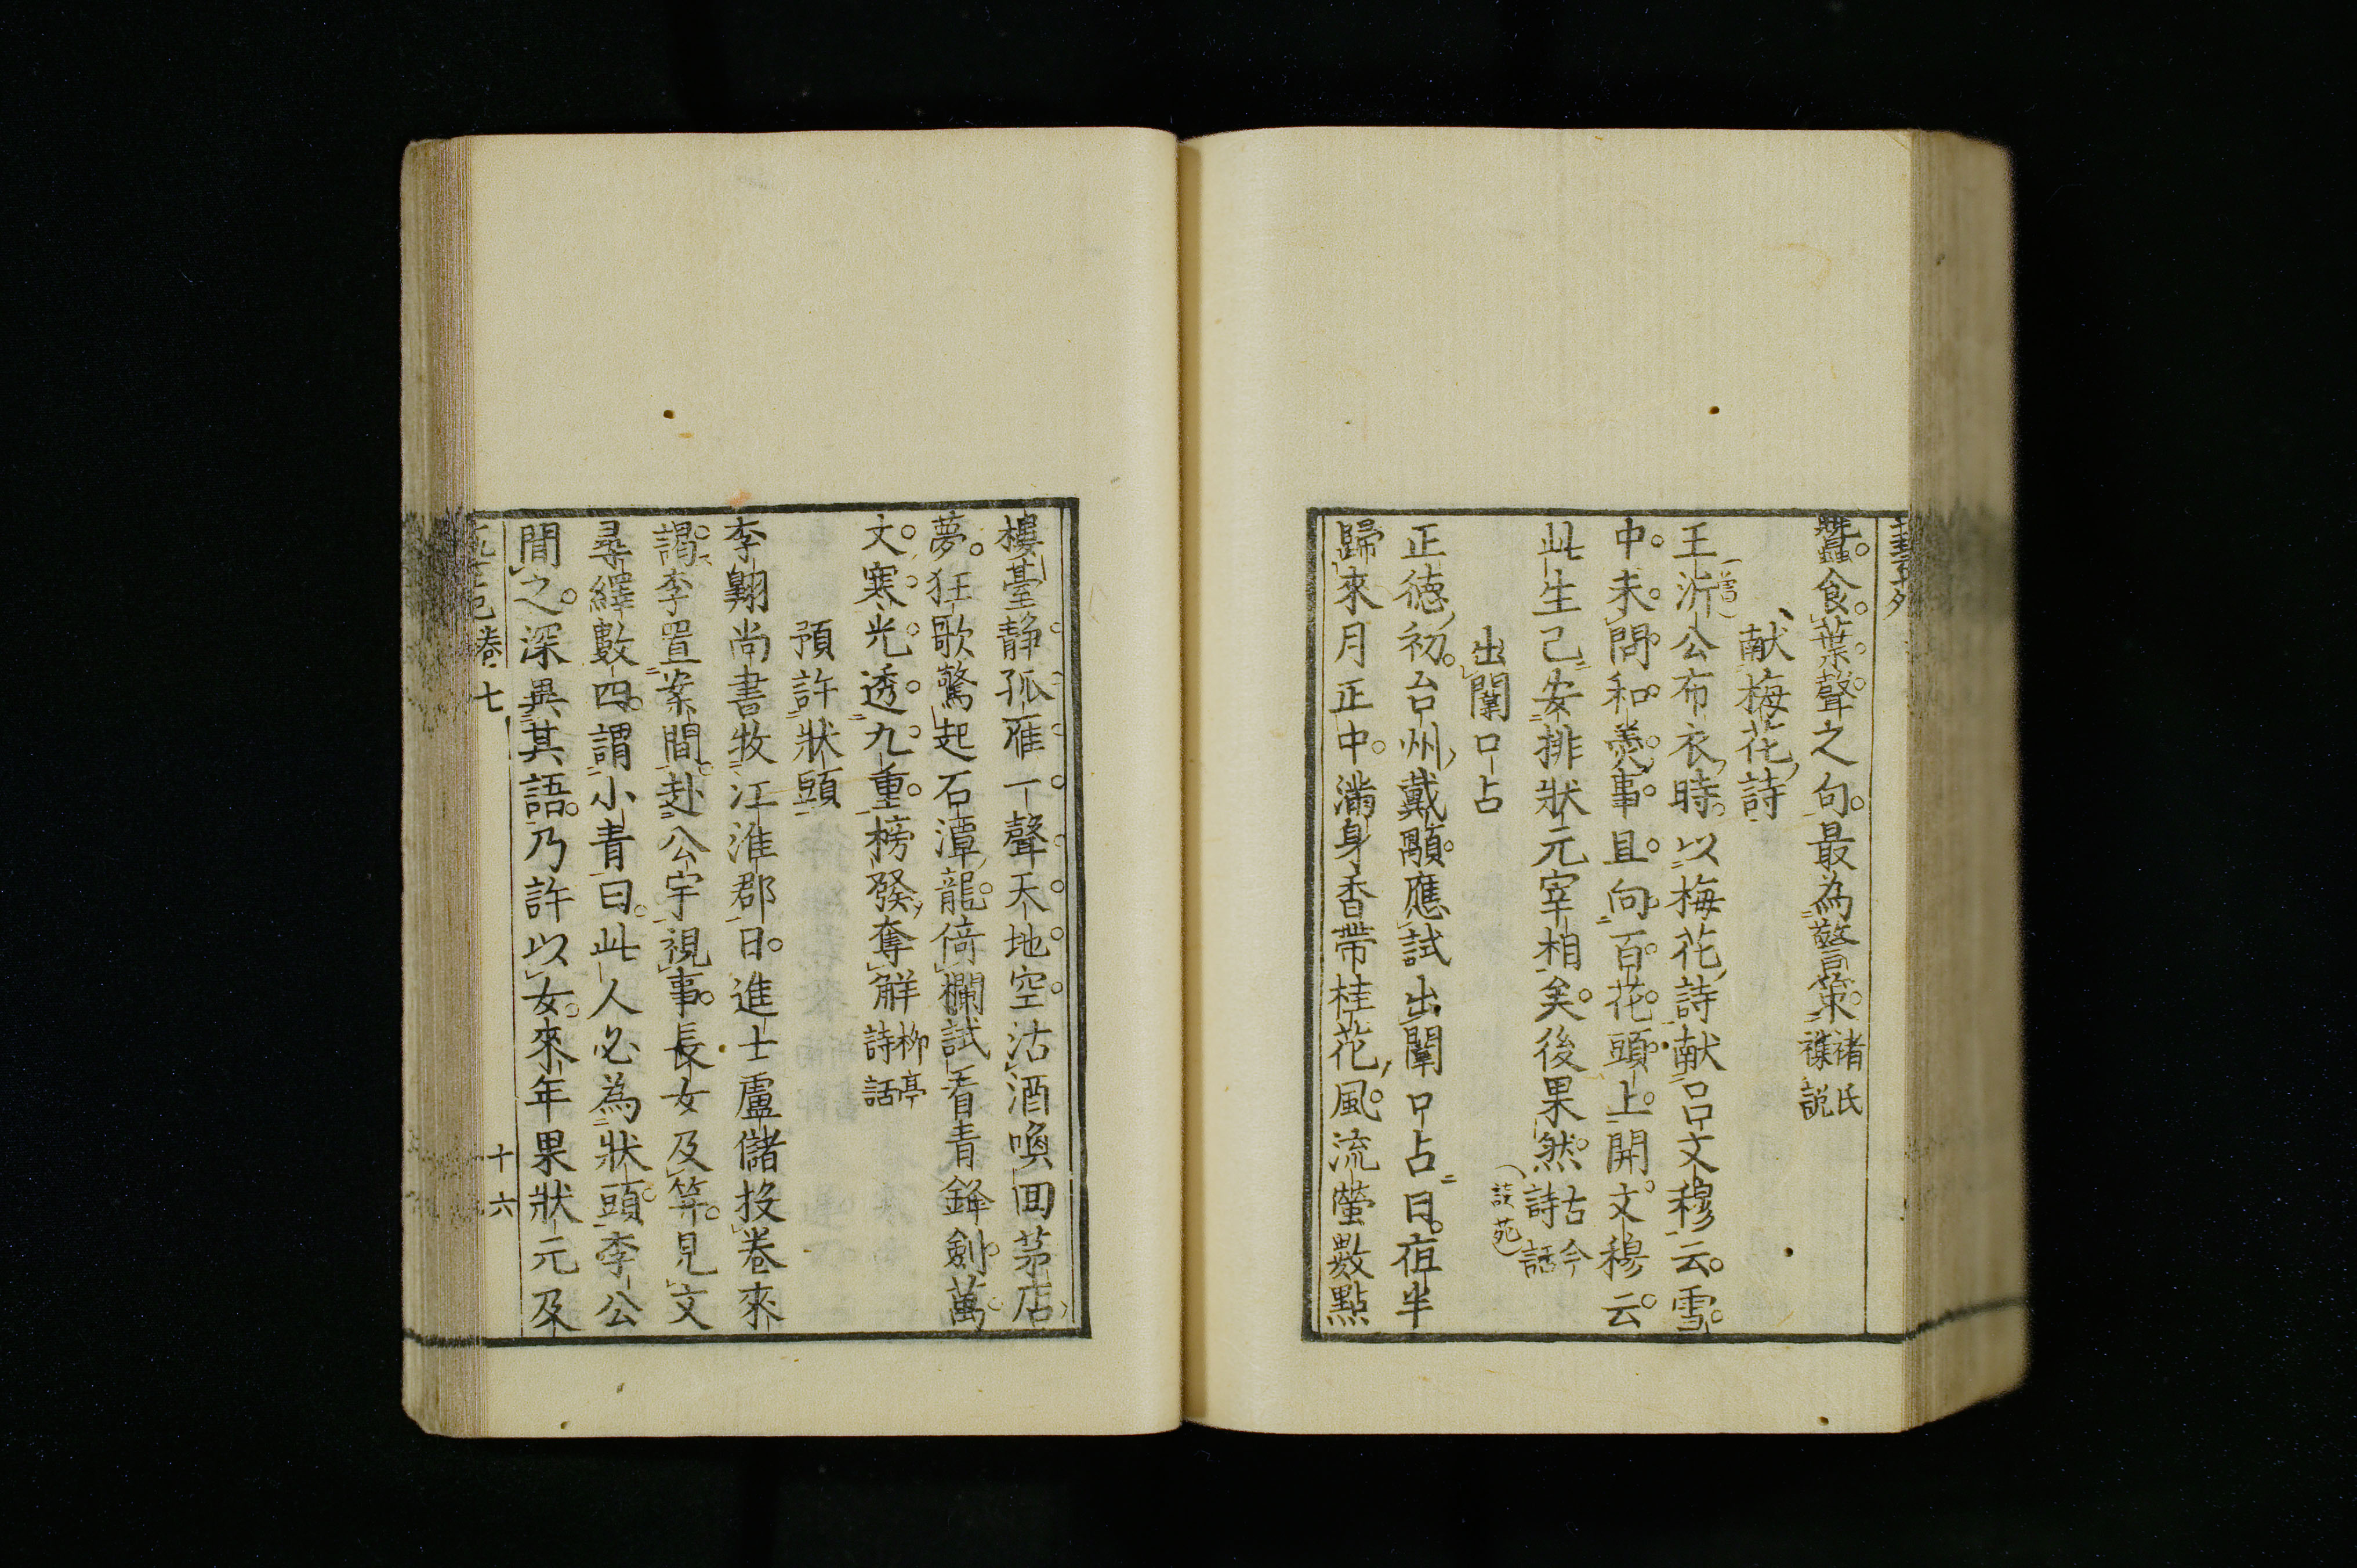 蠶食葉聲之句最為警策褚氏
襍說
献梅花詩
王沂公布衣時以梅花詩献呂文穆云雪
中未問和羹事且向百花頭上開文穆云
此生已安排狀元宰相矣後果然古今
詩話
出闈口占
談苑
正德初台州戴顒應試出闈口占曰夜半
歸來月正中滿身香帶桂花風流螢數點
樓臺静孤雁一聲天地空沽酒喚回茅店
夢狂歌驚起石潭龍倚欄試看青鋒劍萬
文寒光透九重榜發奪解柳亭
詩話
預許狀頭
李翺尚書牧江淮郡日進士盧儲投卷來
謁李置案間赴公宇視事長女及筓見文
尋繹數四謂小青曰此人必為狀頭李公
聞之深異其語乃許以女來年果狀元及
卷七
十六